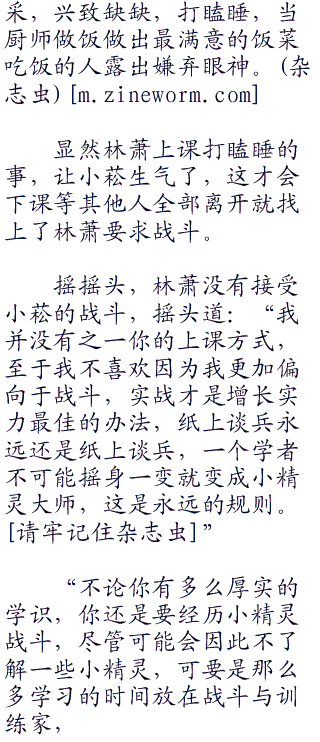 采，兴致缺缺，打瞌睡，当
厨师做饭做出最满意的饭菜
吃饭的人露出嫌弃眼神。(杂
志虫)[m.zineworm.com]
显然林萧上课打瞌睡的
事，让小菘生气了，这才会
下课等其他人全部离开就找
上了林萧要求战斗。
摇摇头，林萧没有接受
小菘的战斗，摇头道：“我
并没有之一你的上课方式，
至于我不喜欢因为我更加偏
向于战斗，实战才是增长实
力最佳的办法，纸上谈兵永
远还是纸上谈兵，一个学者
不可能摇身一变就变成小精
灵大师，这是永远的规则。
[请牢记住杂志虫]”
“不论你有多么厚实的
学识，你还是要经历小精灵
战斗，尽管可能会因此不了
解一些小精灵，可要是那么
多学习的时间放在战斗与训
练家，